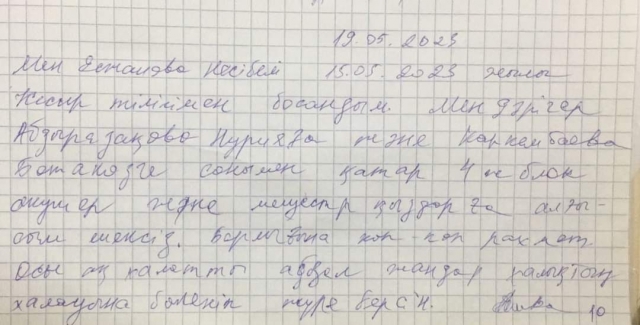 19.05.2023
Мен Еспанова Несібелі 15.05.2023 жылы
Кесір тілігімен босандым. Мен дәрігер
Абдыразақова Нурияға және Каркембаева
Ботакөзге сонымен қатар 4 ж блок
акушер және медсестр қыздарға алғы-
сым шексіз. Барлығына көп көп рахмет
Осы ақ халатты абзал жандар халықтың
халауына бөленіп жүре берсін.
10